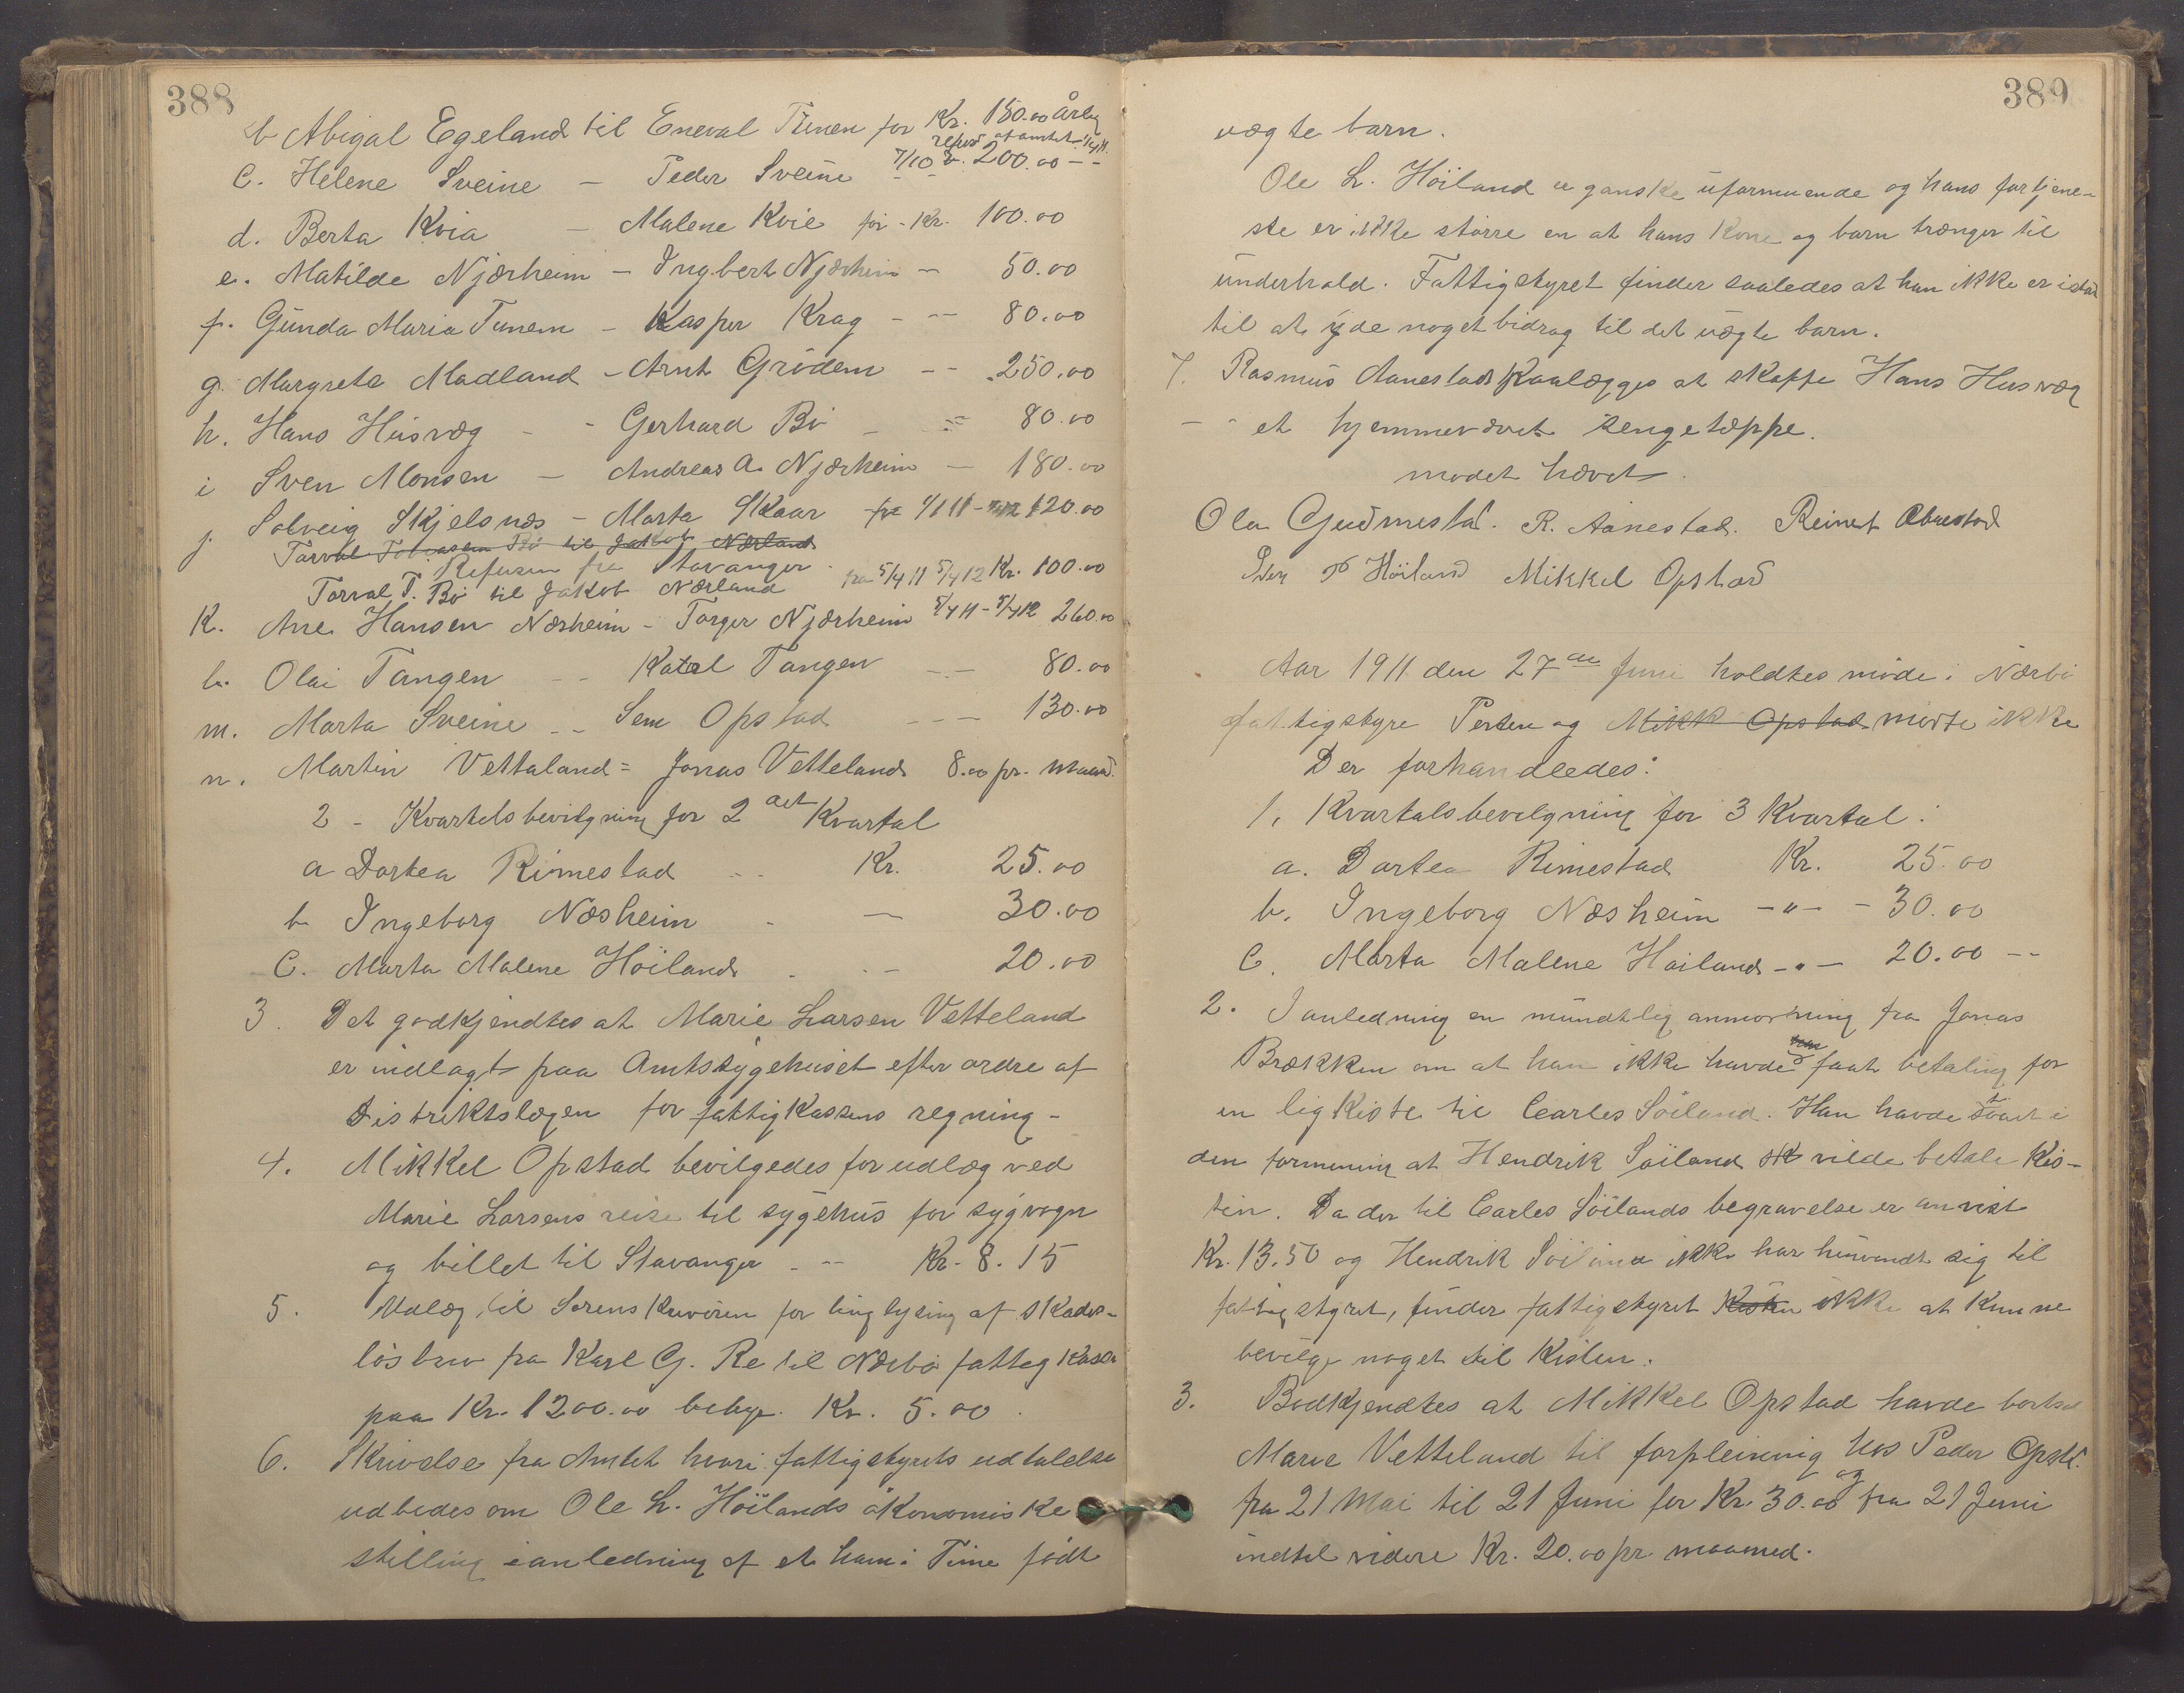 388
b Abigal Egeland til Eneval Tunen for Kr. 150.00 Årlig
C. Helene Sveine – Peder Sveine 7/10 200.00 - -
d. Berta Kvia – Malene Kvie for - Kr. 100.00
e. Matilde Njærheim – Ingbert Njærheim – 50.00
f. Gunda Maria Tunem – Kasper Krag - - 80.00
g. Margreta Madland – Arnt Grödem - - 250.00
h. Hans Husvæg - - Gerhard Bö – 80.00
i Sven Monsen – Andreas A. Njærheim – 180.00
j. Solveig Skjelsnæs – Marta Skaar 120.00
Torval Tobiasen Bö til Jakob Nærland
Refusion fra Stavanger
Torval T. Bö til Jakob Nærland fra 5/4 11 5/4 12 Kr. 100.00
K. Ane Hansen Næsheim – Torger Njærheim 5/4 11 - 5/4 12 260.00
l. Olai Tangen - - Katal Tangen - - 80.00
m. Marta Sveine - - Sem Opstad - - - 130.00
n. Martin Vettaland = Jonas Vetteland 8.00 pr. Maaned.
2 - Kvartelsbevilgning for 2 det Kvartal
a Dortea Rimestad - - Kr. 25.00
b Ingeborg Næsheim - — 30.00
C. Marta Malene Höiland - - — 20.00
3. Det godkjendtes at Marie Larsen Vetteland
er indlagt paa Amtssygehuset efter ordre af
Distriktslægen for fattigkassens regning -
4. Mikkel Opstad bevilgedes for udlæg ved
Marie Larsens reise til sygehus for sygvogn
og billet til Stavanger - -- Kr. 8.15
5. Udlæg til Sorenskriveren for tinglysing af skades-
lösbrev fra Karl G. Re til Nærbö fattegkasse
paa Kr. 1200.00 bebyr. Kr. 5.00.
6. Skrivelse fra Amtet hvori fattigstyrets udtalelse
udbedes om Ole L. Höilands ökonomiske
stilling i anledning af et ham i Time födt
389
uægte barn.
Ole L. Höiland er ganske uformuende og hans fortjene-
ste er ikke större en at hans Kone og barn trænger til
underhold. Fattigstyret finder saaledes at han ikke er istan
til at yde noget bidrag til det uægte barn.
7. Rasmus Aanestad paalægges at skaffe Hans Husvæg
- - et hjemmevævet sengetæppe.
mödet hævet.
Ola Gudmestad. R. Aanestad. Reinert Obrestad
Peder P Höiland Mikkel Opstad
Aar 1911 den 27de Juni holdtes möde i Nærbö
fattigstyre Persen og Mikk Opstad mödte ikke
Der forhandledes:
1. Kvartalsbevilgning for 3 Kvartal:
a. Dortea Rimestad Kr. 25.00
b. Ingeborg Næsheim -"- - 30.00
C. Marta Malene Höiland -"- 20.00 --
2. I anledning en mundtlig anmodning fra Jonas
Brækken om at han ikke havde faat betaling for
en ligkiste til Carles Söiland. Han havde staat i
den formening at Hendrik Söiland vilde betale Kis-
ten. Da der til Carles Söilands begravelse er anvist
Kr. 13.50 og Hendrik Söiland ikke har henvendt sig til
fattigstyret, finder fattigstyret Kisten ikke at Kunne
bevilge noget til Kisten.
3. Godkjendtes at Mikkel Opstad havde bortsat
Marie Vetteland til forpleining hos Peder Opst.
fra 21 Mai til 21 Juni for Kr. 30.00 og fra 21 Juni
indtil videre Kr. 20.00 pr maaned.